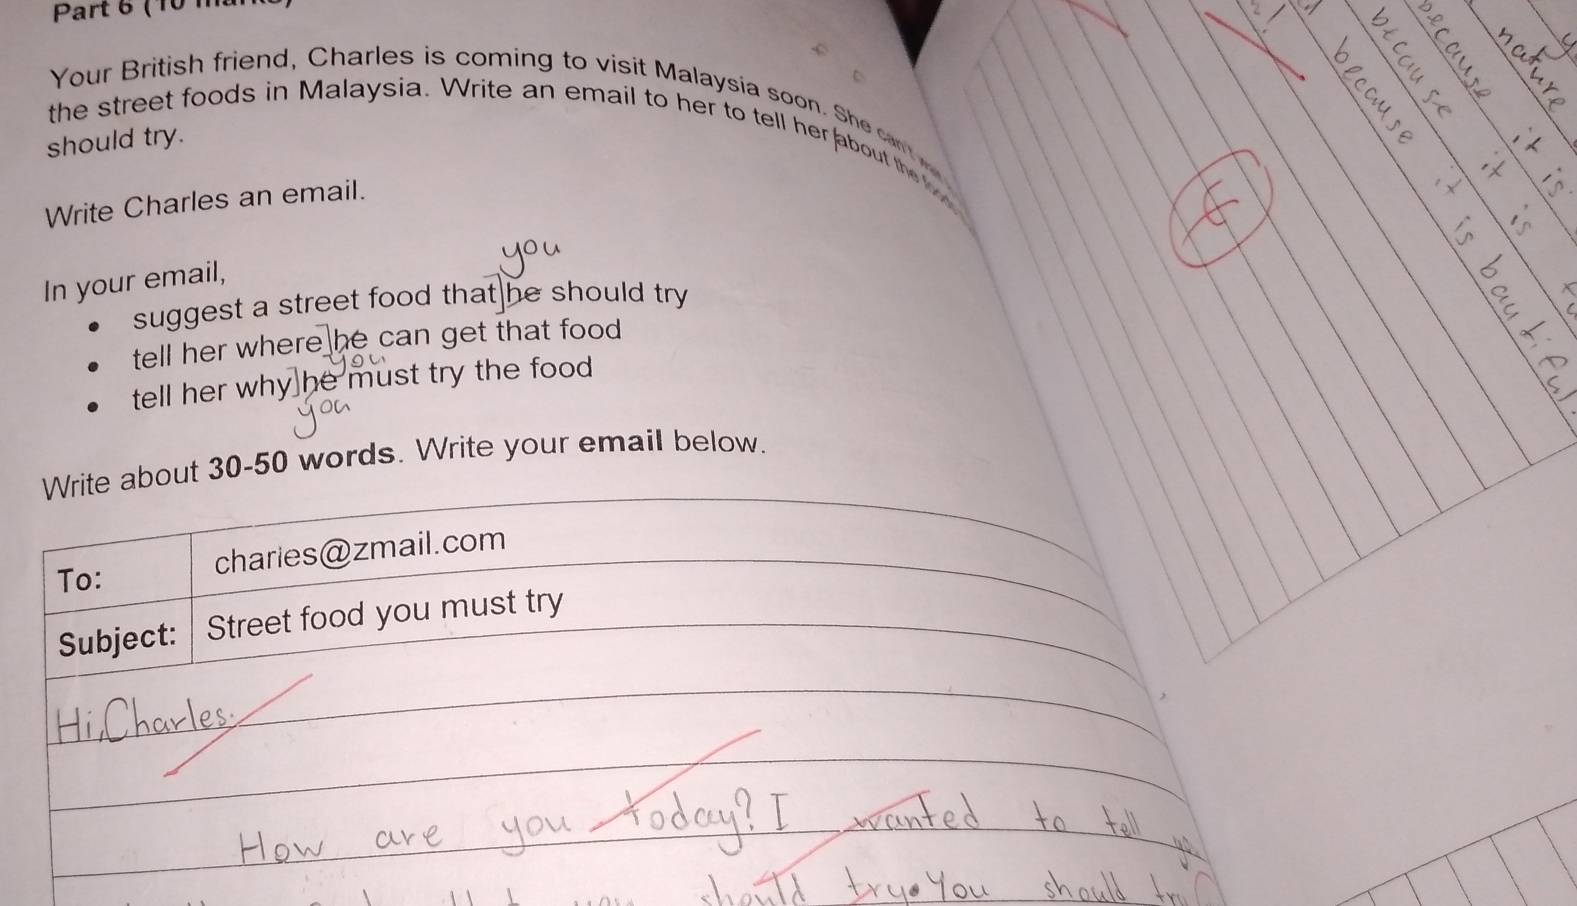 Part 6 (10
Your British friend, Charles is coming to visit Malaysia soon. She can't
the street foods in Malaysia. Write an email to her to tell her about the
should try.
Write Charles an email.
In your email,
you
• suggest a street food that he should try
• tell her where he can get that food
you
• tell her why he must try the food
you
Write about 30-50 words. Write your email below.
To: charies@zmail.com
Subject: Street food you must try
Hi, Charles.
How are you today? I wanted to tell you
should try. You should try
because it is bautiful.
because it is
because it is
nature